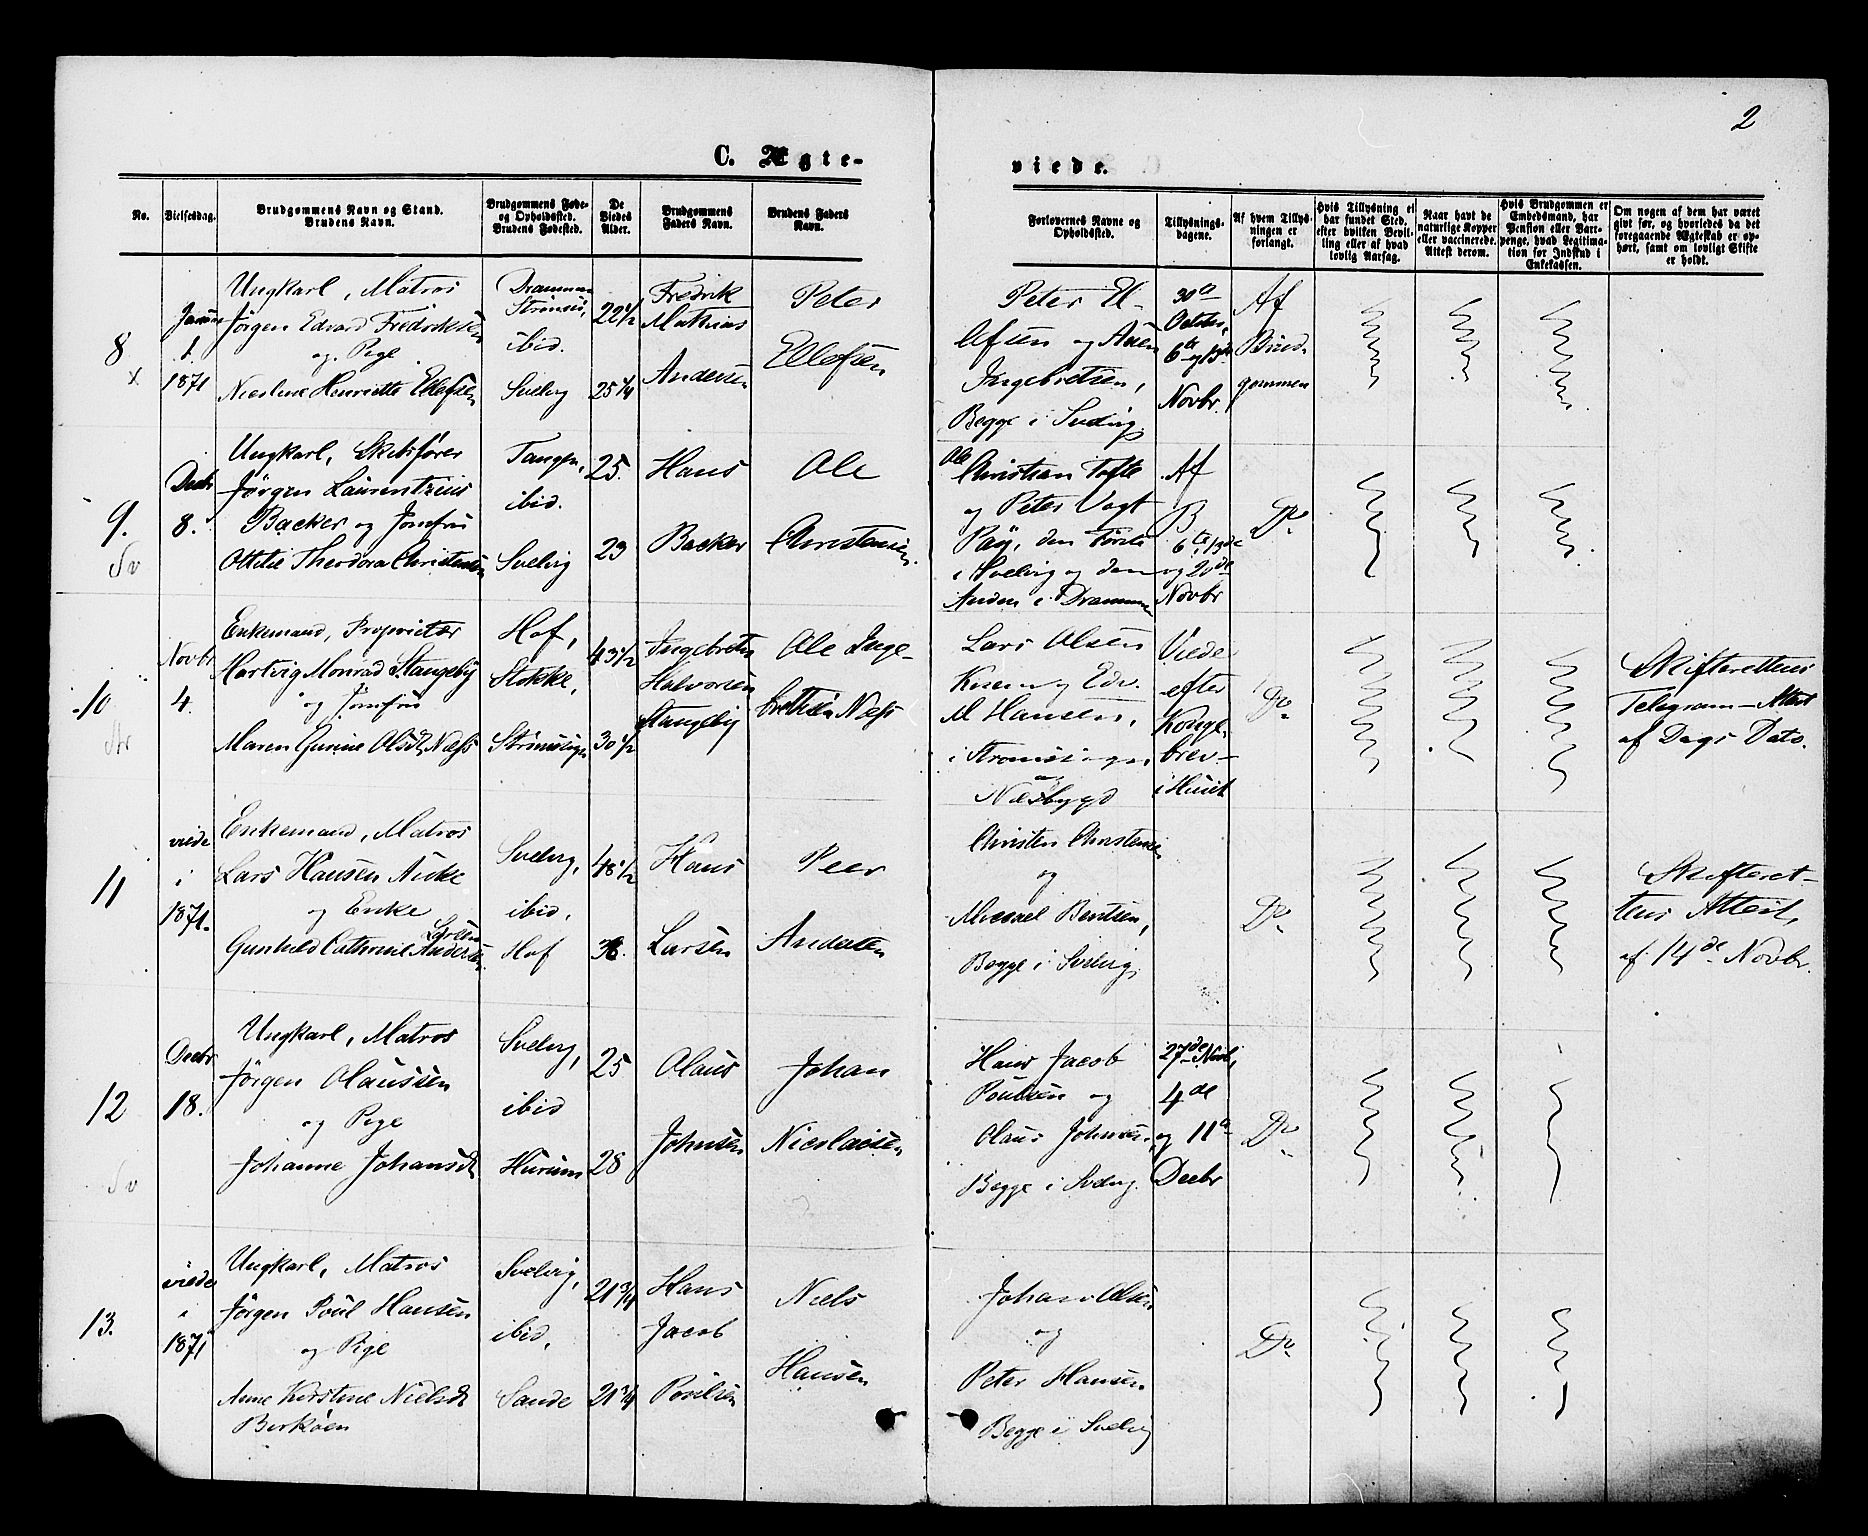 2
C. Ægte-
viede.
No.
Vielsesdag.
Brudgommens Navn og Stand.
Brudens Navn.
Brudgommens Føde-
og Opholdssted.
Brudens Fødested.
De
Viedes
Alder.
Brudgommens
Faders Navn.
Brudens Faders
Navn.
Forlovernes Navne og
Opholdssted.
Tillysnings-
dagene.
Af hvem Tillys-
ningen er
forlangt.
Hvis Tillysning ei
har fundet Sted,
efter hvilken Bevil-
ling eller af hvad
lovlig Aarsag.
Naar havt de
naturlige Kopper
eller vaccinerede.
Attest derom.
Hvis Brudgommen er
Embedsmand, har
Pension eller Vart-
penge, hvad Legitima-
tion for Indskud i
Enkekassen.
Om nogen af dem har været
gift før, og hvorledes da det
foregaaende Ægteskab er op-
hørt, samt om lovligt Skifte
er holdt.
8
1.
1871
Ungkarl, Matros
Jørgen Edvard Fredriksen
og Pige
Nicoline Henriette Ellefsen
Drammen
Strømsø,
ibid.
Svelvig
22 1/2
25 1/4
Fredrik
Mathias
Andersen
Peter
Ellefsen
Peter El-
lefsen og
Ingebretsen,
Begge i Svelvig
30te
Octbr,
6te og 13de
Novbr.
Af
Brud-
gommen
9.
Sv
Decbr
8.
Ungkarl, Skibsfører
Jørgen Laurentzius
Backer og Jomfru
Ottilie Theodora Christensen
Tangen,
ibid.
Svelvig
25.
23
Hans
Backer
Ole
Christensen.
Ole
Christian Tofte
og Peter Vogt
Paÿ, den Første
i Svelvig og den
Anden i Drammen
Af
B
6te, 13de
og 20de
Novbr
Do
10
Str
Novbr
4.
Enkemand, Proprietær
Hartvig Monrad Stangeby
og Jomfru
Maren Gurine Olsdt Næss
Hof,
Stokke,
Strømsogn
43 1/2
30 1/2
Ingebreth
Halvorsen
Stangeby
Ole Inge-
brethsen Næss
Lars Olsen
og Edv.
M Hansen,
i Strømsogn
Næsbygd
Viede
efter
Konge-
brev
i Huset
Do
Skifterettens
Telegram-Attest
af Dags Dato.
11
viede
i
1871.
Enkemand, Matros
Lars Hansen
og Enke
Larsen
Gunhild Cathrine Andersen
Svelvig,
ibid,
Hof
48 1/2
Hans
Larsen
Peer
Andersen
Christen Christensen
og
Michael Bentsen,
Begge i Svelvig,
Do
Skifteret-
tens Attest,
af 14de Novbr.
12
Sv
Decbr
18.
Ungkarl, Matros
Jørgen Olaussen
og Pige
Johanne Johansdt
Svelvig,
ibid
Hurum
25
28
Olaus
Johnsen
Johan
Nicolaisen
Hans Jacob
Poulsen og
Olaus Johnsen,
Begge i Svelvig.
27de Novbr,
4de
og 11te
Decbr
Do
13.
viede
i
1871
Ungkarl, Matros
Jørgen Poul Hansen
og Pige
Anne Kirstine Nielsdt
Berkøen
Svelvig,
ibid,
Sande
21 3/4
21 3/4
Hans
Jacob
Poulsen
Niels
Hansen
Johan Olsen
og
Peter Hansen
Begge i Svelvig
Do